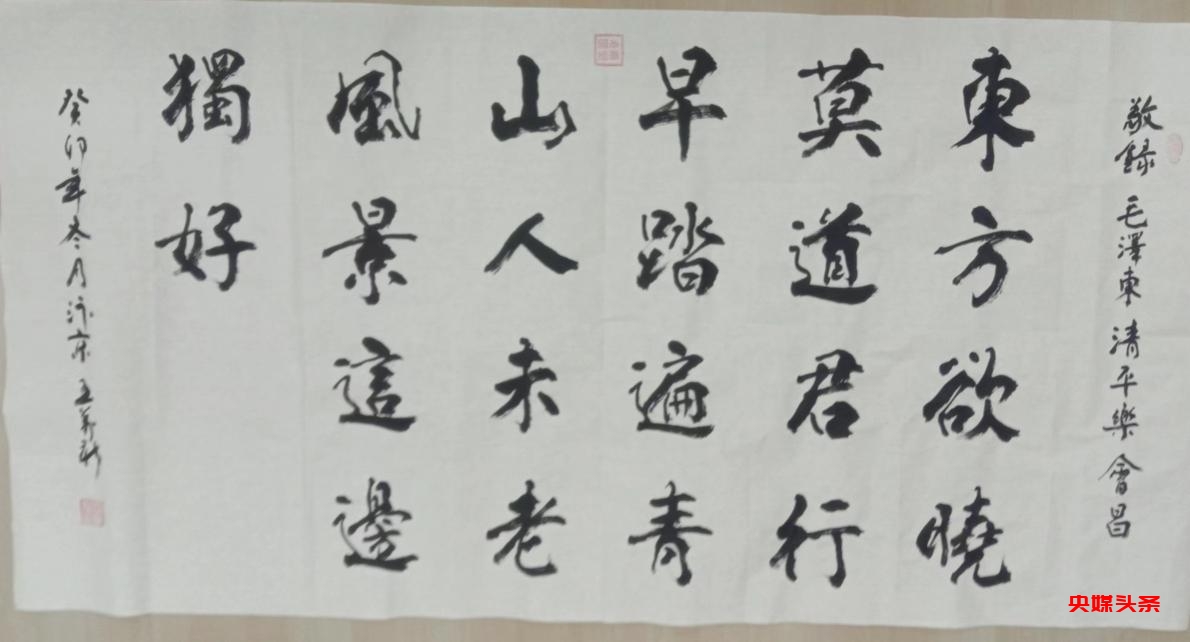 敬録毛澤東清平樂會昌
東方欲曉
莫道君行
早踏遍青
山人未老
風景這邊
獨好
癸卯年冬月汴京王
央媒头条